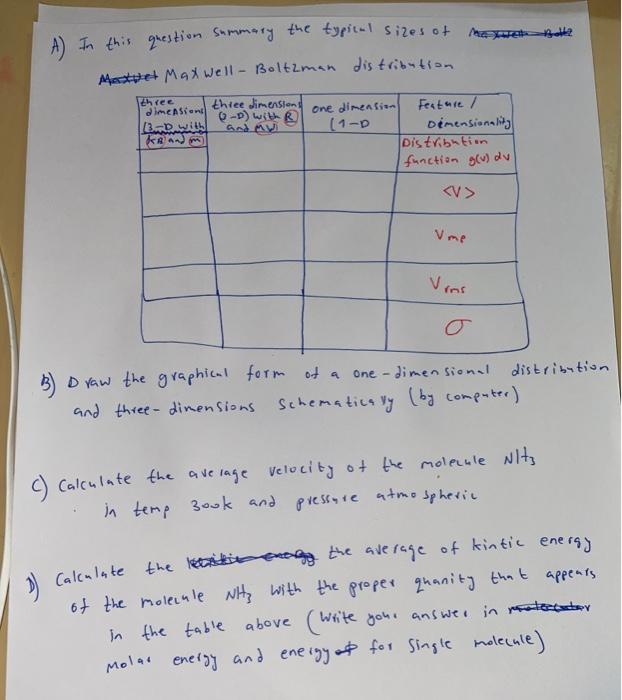 A) In this question summary the typical sizes of
Maxwell-Boltzman distribution
three dimensions (3-D with KB and m)
three dimensions (3-D) with R and MW
one dimension (1-D
Feature / Dimensionality
Distribution function g(v) dv
<V>
Vmp
Vrms
σ
B) Draw the graphical form of a one-dimensional distribution
and three-dimensions schematicavy (by computer)
C) Calculate the average velocity of the molecule NH3
in temp 300k and pressure atmospheric
D) Calculate the the average of kintic energy
of the molecule NH3 with the proper quanity that appears
in the table above (write your answer in
Molar energy and energy for single molecule)